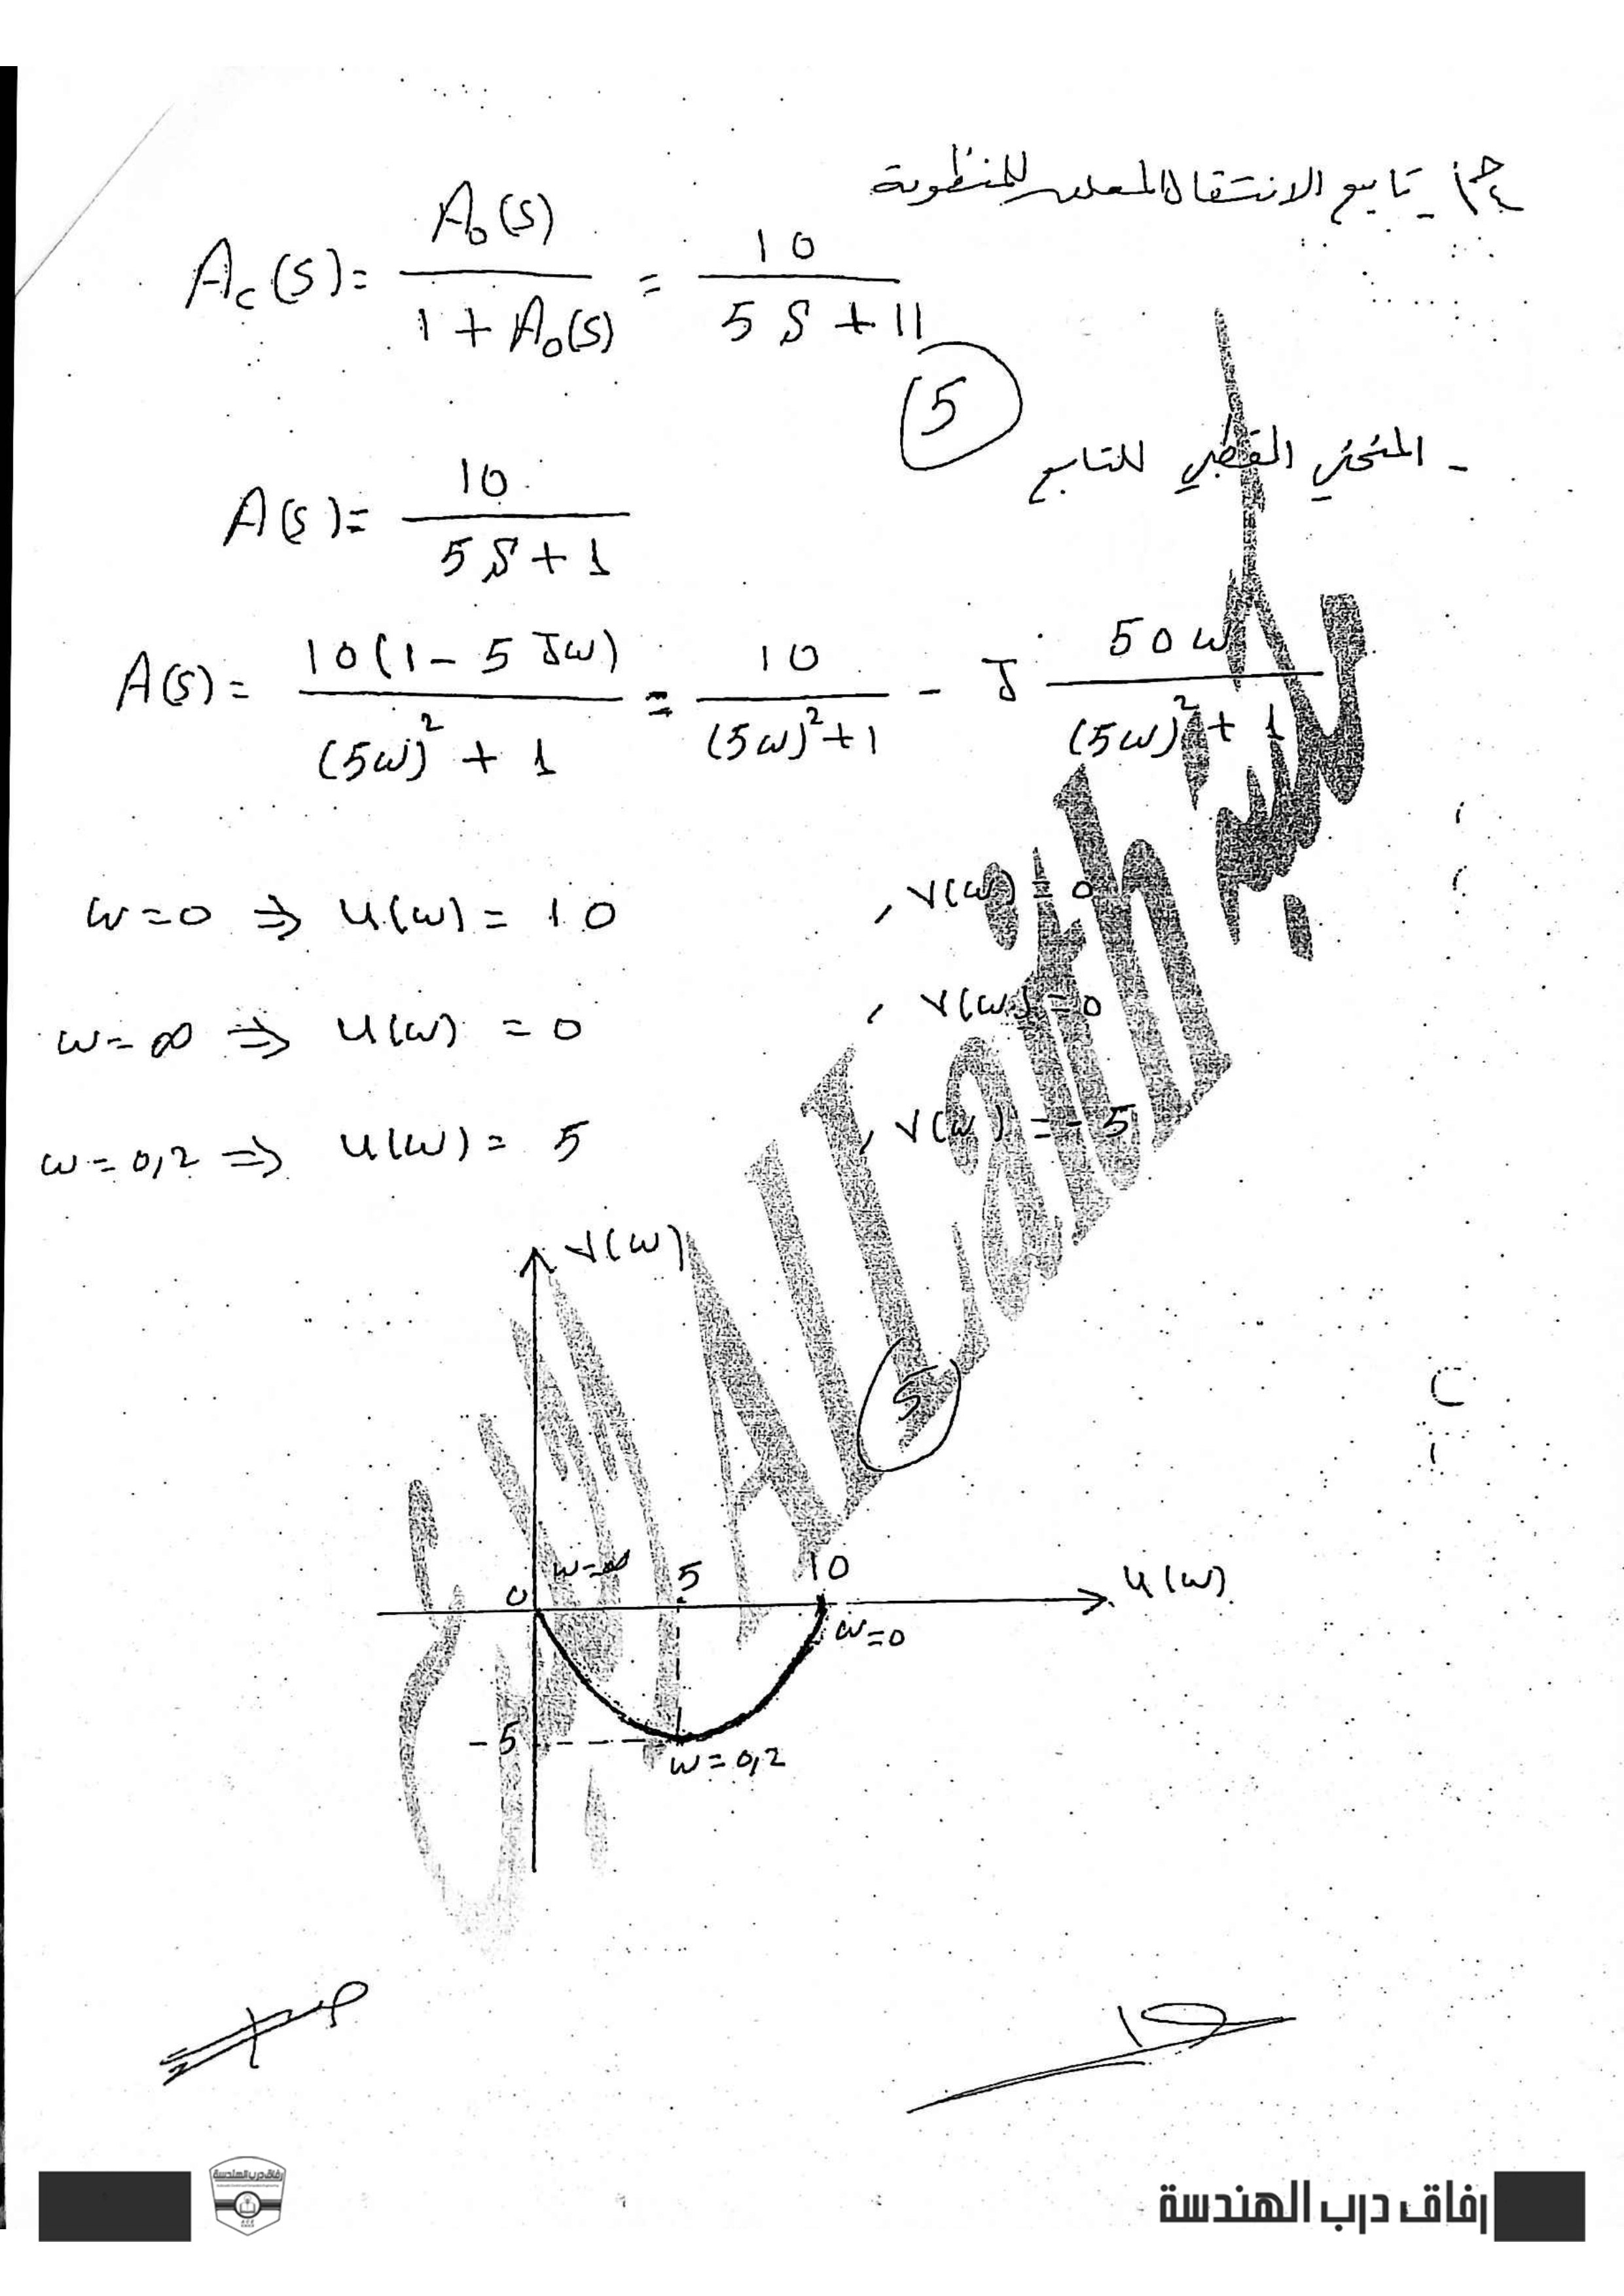 ج1 - تابع الانتقال المغلق للمنظومة
Ac(s) = A₀(s) / (1 + A₀(s)) = 10 / (5S + 11)
5
- المنحني القطبي للتابع
A(s) = 10 / (5S + 1)
A(s) = 10(1 - 5Jω) / ((5ω)² + 1) = 10 / ((5ω)² + 1) - J 50ω / ((5ω)² + 1)
ω = 0 ⇒ u(ω) = 10 , v(ω) = 0
ω = ∞ ⇒ u(ω) = 0 , v(ω) = 0
ω = 0,2 ⇒ u(ω) = 5 , v(ω) = -5
v(ω)
5
0 ω=∞ 5 10 u(ω)
ω=0
-5
ω = 0,2
ALLaith
رفاق درب الهندسة
رفاق درب الهندسة